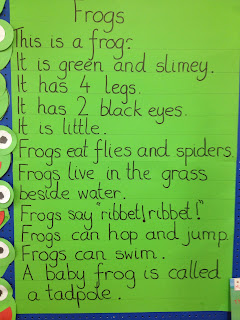 Frogs
This is a frog.
It is green and slimey.
It has 4 legs.
It has 2 black eyes.
It is little.
Frogs eat flies and spiders.
Frogs live in the grass
beside water.
Frogs say "ribbet! ribbet!"
Frogs can hop and jump.
Frogs can swim.
A baby frog is called
a tadpole.